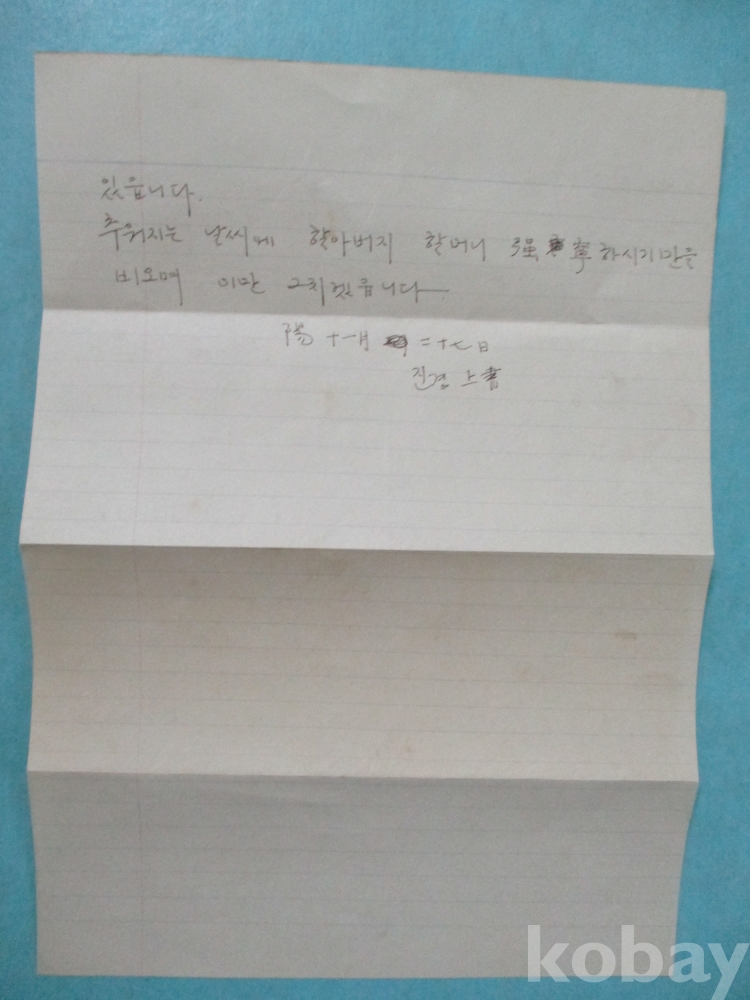 있읍니다.
추워지는 날씨에 할아버지 할머니 强寧하시기만을
비오며 이만 그치겠읍니다
陽 十一月 二十七日
진경 上書
kobay